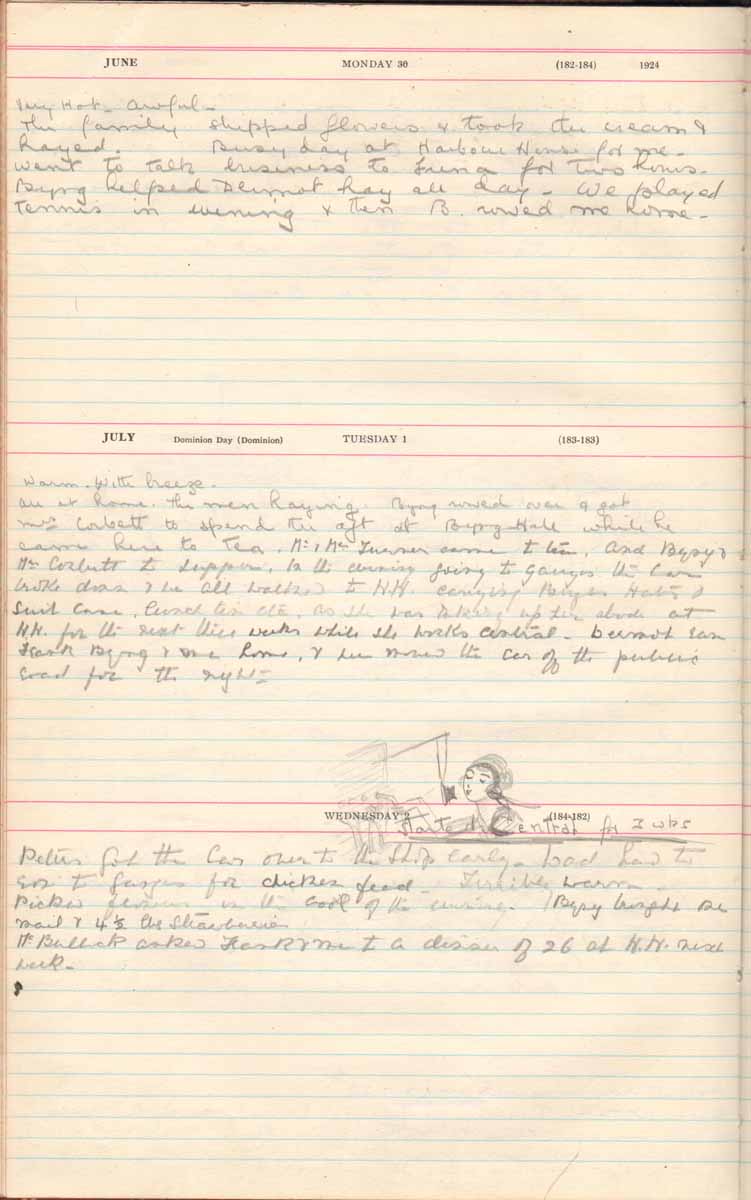 JUNE MONDAY 30 (182-184) 1924
Very Hot - awful -
The family shipped flowers & took the cream &
hayed. Busy day at Harbour House for me -
went to talk business to for two hours -
helped Dermot hay all day - We played
tennis in evening & then B. rowed me home -
JULY Dominion Day (Dominion) TUESDAY 1 (183-183)
Warm. With breeze.
all at home. The men haying. rowed over & got
Mrs Corbett to spend the aft at Hall while he
came here to tea. Mr & Mrs Turner came to tea, and &
Mrs Corbett to supper. In the evening going to Ganges the Car
broke down & we all walked to H.H. carrying &
Suit Case, etc, as she was taking up her abode at
H.H. for the next three weeks while she works central - Dermot ran
Frank & me home, & we moved the car of the public
road for the night
WEDNESDAY 2 (184-182)
Started Central for 3 wks
got the Car over to the Ship early - had to
to Ganges for chicken feed - Terribly warm -
Picked flowers in the cool of the evening. brought the
mail & 4½ lbs Strawberries
Mr Bullock asked Frank & me to a dinner of 26 at H.H. next
week -